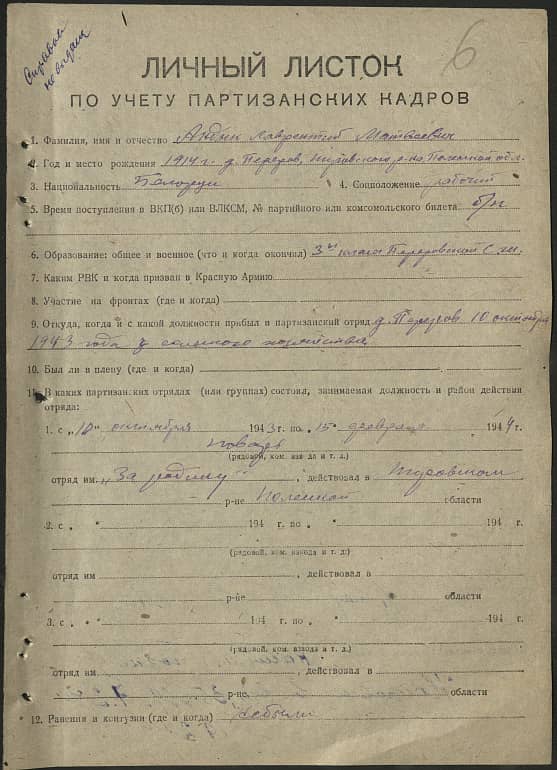 Справка не выдана
6
ЛИЧНЫЙ ЛИСТОК
ПО УЧЕТУ ПАРТИЗАНСКИХ КАДРОВ
1. Фамилия, имя и отчество Лаврентий Матвеевич
2. Год и место рождения 1914 г. д. Переров, р-на Полесской обл.
3. Национальность Белорус 4. Соцположение рабочий
5. Время поступления в ВКП(б) или ВЛКСМ, № партийного или комсомольского билета б/п
6. Образование: общее и военное (что и когда окончил) 3 класса Переровской
7. Каким РВК и когда призван в Красную Армию
8. Участие на фронтах (где и когда)
9. Откуда, когда и с какой должности прибыл в партизанский отряд д. Переров 10 октября
1943 года сельского хозяйства
10. Был ли в плену (где и когда)
11. В каких партизанских отрядах (или группах) состоял, занимаемая должность и район действия
отряда:
1. с „10" октября 1943 г. по „15" февраля 1944 г.
повар
(рядовой, ком. взвода и т. д.)
отряд им. „За родину", действовал в Туровском
р-не Полесской области
2. с „ " 194 г. по „ " 194 г.
(рядовой, ком. взвода и т. д.)
отряд им , действовал в
р-не области
3. с „ " 194 г. по „ " 194 г.
(рядовой, ком. взвода и т. д.)
отряд им , действовал в
р-не области
12. Ранения и контузии (где и когда) не было